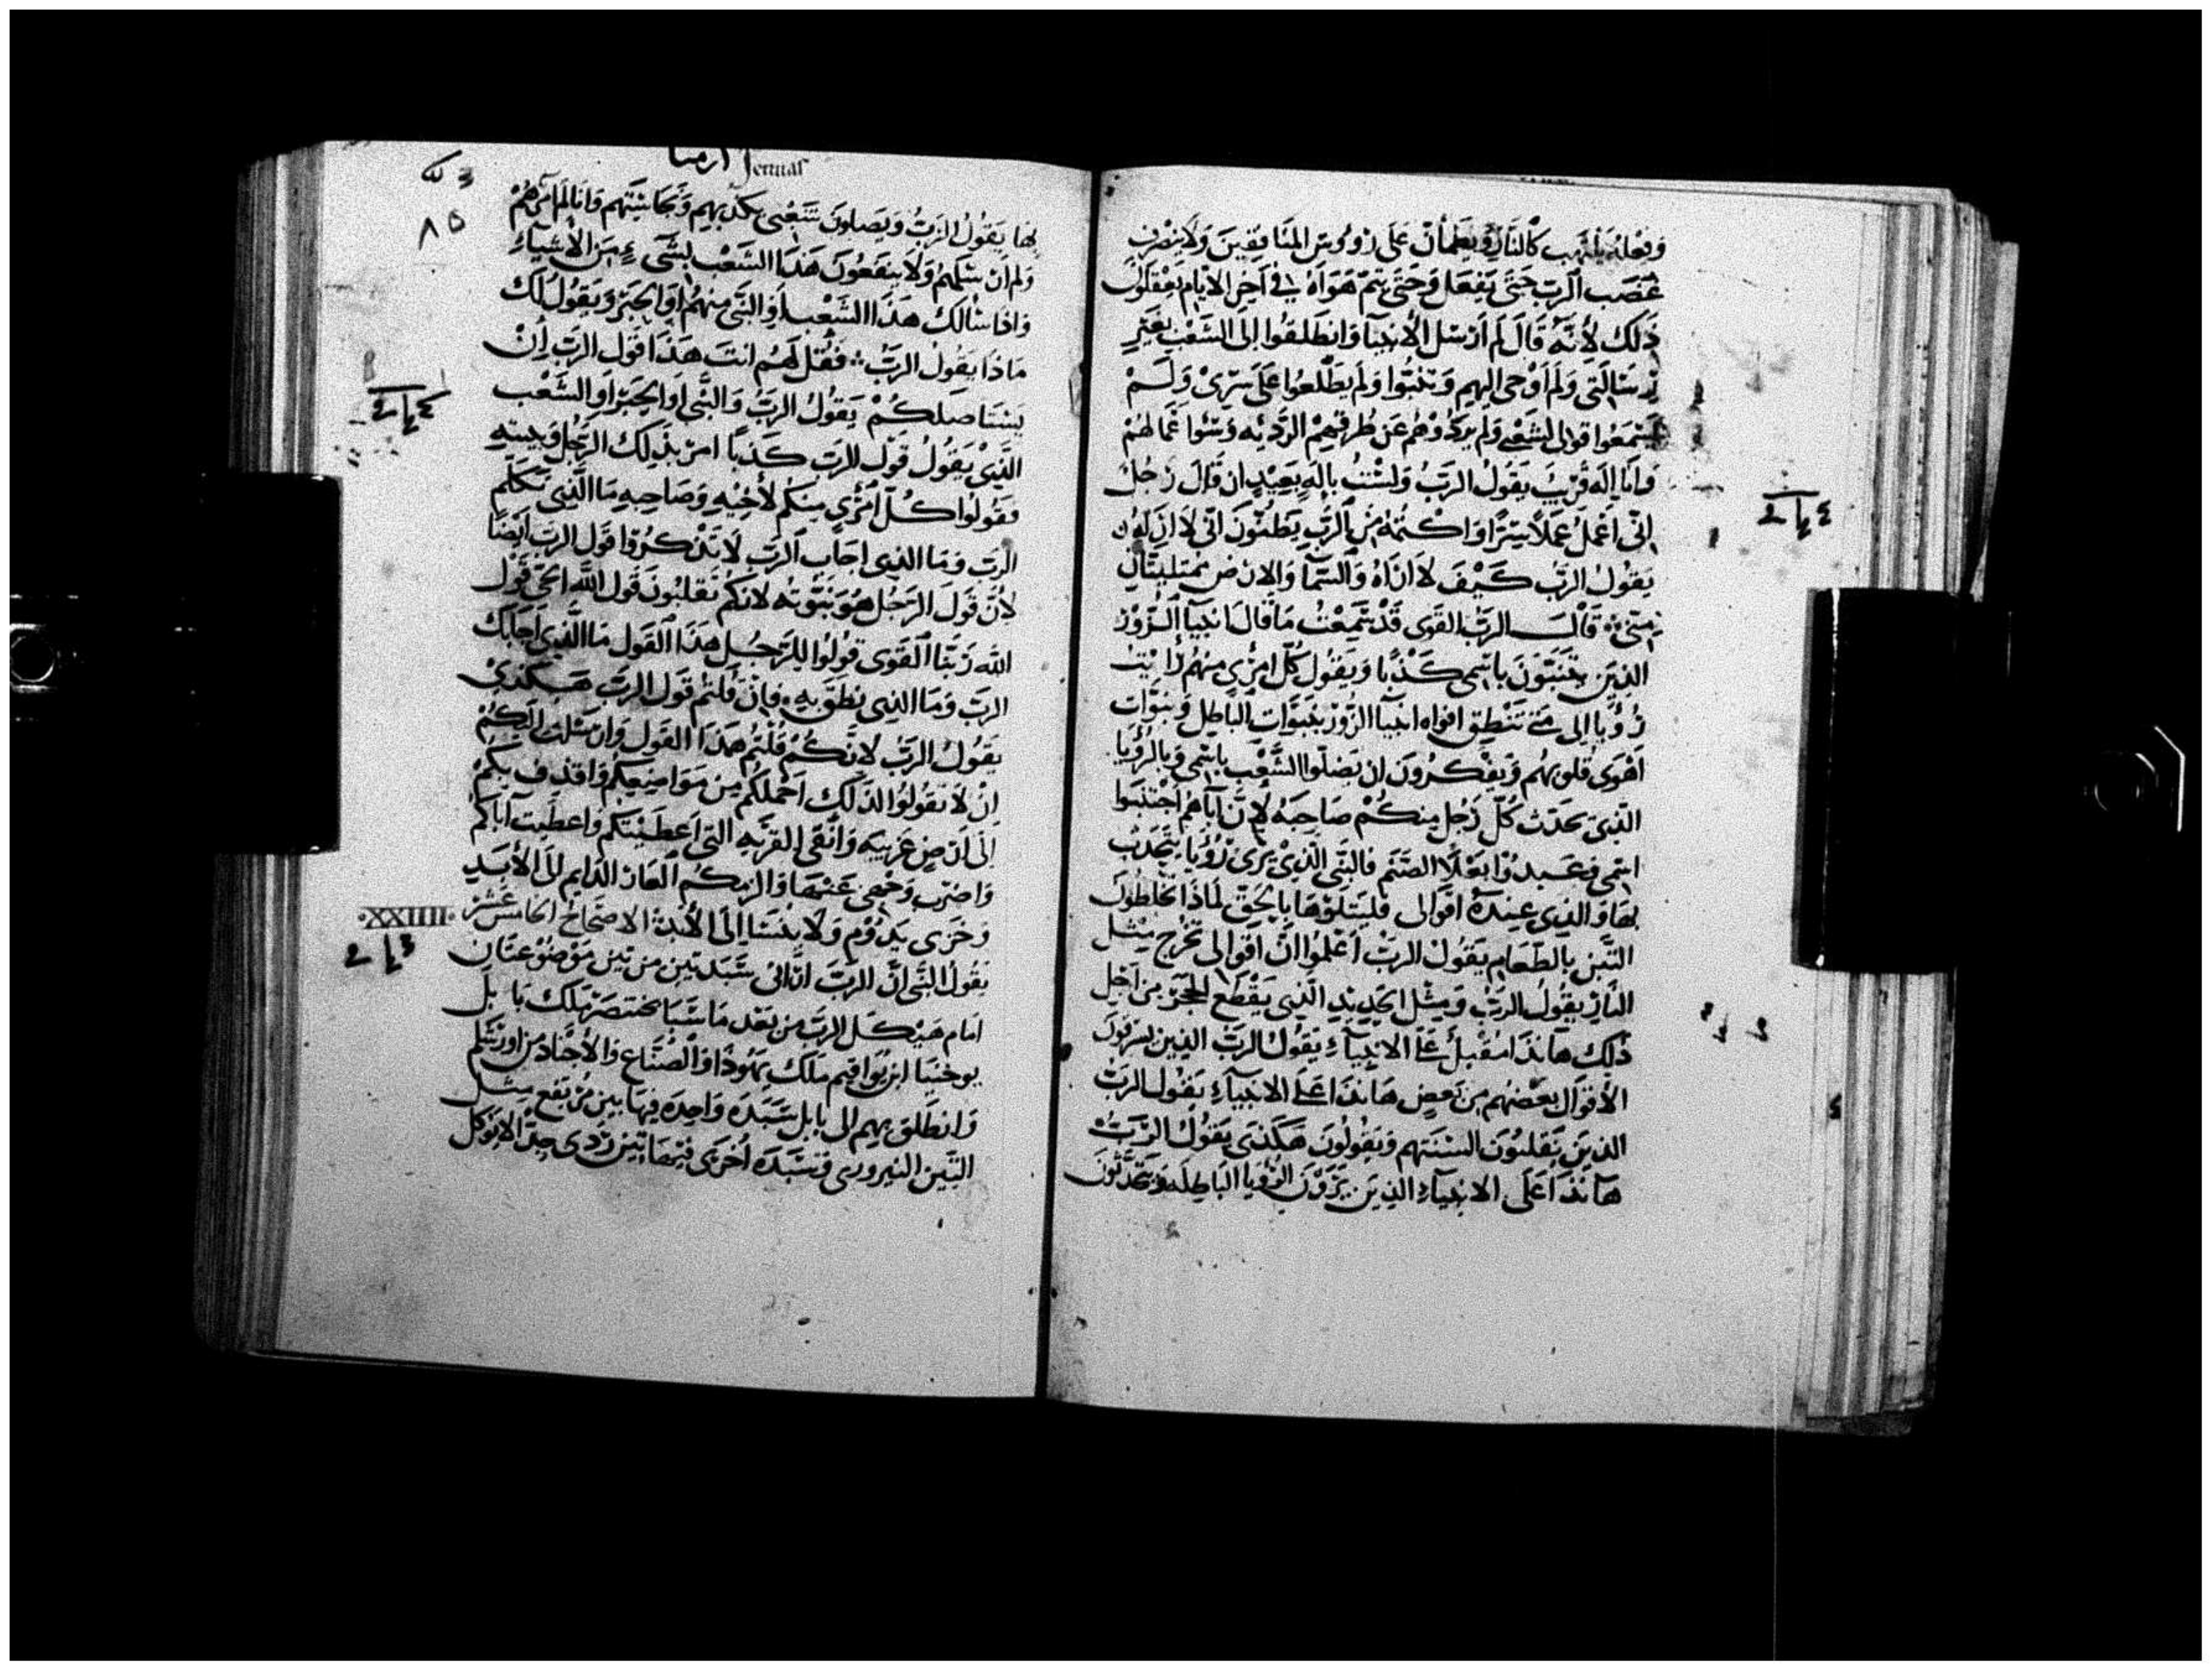 وفعله يلتهب كالنار ويطمان على رووس المنافقين ولا ينصرف
غضب الرب حتى يفعل وحتى يتم هواه في اخر الايام يعقلون
ذلك لأنه قال لم ارسل الأنبيآ وانطلقوا الى الشعب بغير
رسالتي ولم اوحى اليهم وتنبّوا ولم يطّلعوا على سرّي ولم
يسمعوا قوالى لشعبي ولم يردّوهم عن طرقهم الرّديّه وسوا اعمالهم
وانا إله قريب يقول الربّ ولست باله بعيد ان قال رجل
انّى اعمل عملاً سرّا واكتمه من الربّ يظنون انى لا ارى لهون
يقول الربّ كيف لا اراهُ والسّمآ والارض ممتليتان
منّى قالــ الربّ القوى قد سمعت ما قال انبيآ الزّور
الذين يتنبّون باسمى كذبًا ويقول كلّ امرىٍ منهم رايت
رُويا الى متى تنطق افواه انبيآ الزّور بنبوّات الباطل وبنبوّات
اهوى قلوبهم ويفكرون ان يضلّوا الشّعب باسمى وبالرؤيا
الذى يحدّث كلّ رجل منكم صاحبه لإنّ آباهم اجتنبوا
اسمى فعبدوا بعلا الصّنم فالنّبى الّذي يرى رُؤيا يتحدّث
بها والذى عنده اقوالى فليتلوها بالحقّ لماذا تخلطون
التّبن بالطّعام يقول الربّ اعلموا انّ اقوالى تخرج مثل
النّار يقول الربّ ومثل الحديد الّذى يقطع الحجر من اجل
ذلك هاندا مقبل على الانبيآء يقول الربّ الذين يسرقون
الأقوال بعضهم من بعض هاندا على الانبيآء يقول الربّ
الذين يقلبون السنتهم ويقولون هكذى يقول الربّ
هاندا على الانبيآء الذين يرون الرّؤيا الباطله ويتحدّثون
ارميا Jerimias
٨٥
بها يقول الربّ ويضلون شعبي بكذبهم ونجاستهم وانا لم آمرهم
ولم ارسلهم ولا ينفعون هذا الشعب بشىء من الأشيآء
واذا سالك هذا الشعب او النّبى منهم او الحبر ويقول لك
ماذا يقول الربّ فقل لهم انت هذا قول الربّ إن
يستاصلكم يقول الربّ والنّبى او الحبر او الشّعب
الّذى يقول قول الربّ كذبا امر بذلك الرّجل وبيته
فقولوا كلّ امرىٍ منكم لأخيه وصاحبه ما الّذى تكلّم
الربّ وما الذى اجاب الربّ لا تذكروا قول الربّ ايضا
لأن قول الرجل هو نبوّته لانكم تقلبون قول الله الحىّ قول
الله ربنا القوى قولوا للرّجل هذا القول ما الّذى اجابك
الربّ وما الذى نطق به فإن قلتم قول الربّ هــكذى
يقول الربّ لانّكم قلتم هذا القول وارسلت اليكم
ان لا تقولوا الذلك احملكم من مواضعكم واقذف بكم
الى ارض غريبه وانفى القريه التى اعطيتكم واعطيت آباكم
واضرب وجهى عنها والزمكم العار الدّايم لل الأبد
وخزى يدوم ولا ينسا الى الأبد الاصحاح الخامس عشر
·XXIIII·
يقول النّبى انّ الربّ ارانى سبدتين من تين موضوعتان
امام هيكل الربّ من بعد ما سبا بختصر ملك بابل
يوخنيا ابن يواقيم ملك يهودا والصّناع والأجناد من اورشلم
وانطلق بهم الى بابل سبده واحده فيها تين مرتفع مثل
التّين النيرورى وسبده اخرى فيها تين ردى جدّا لا يوكل